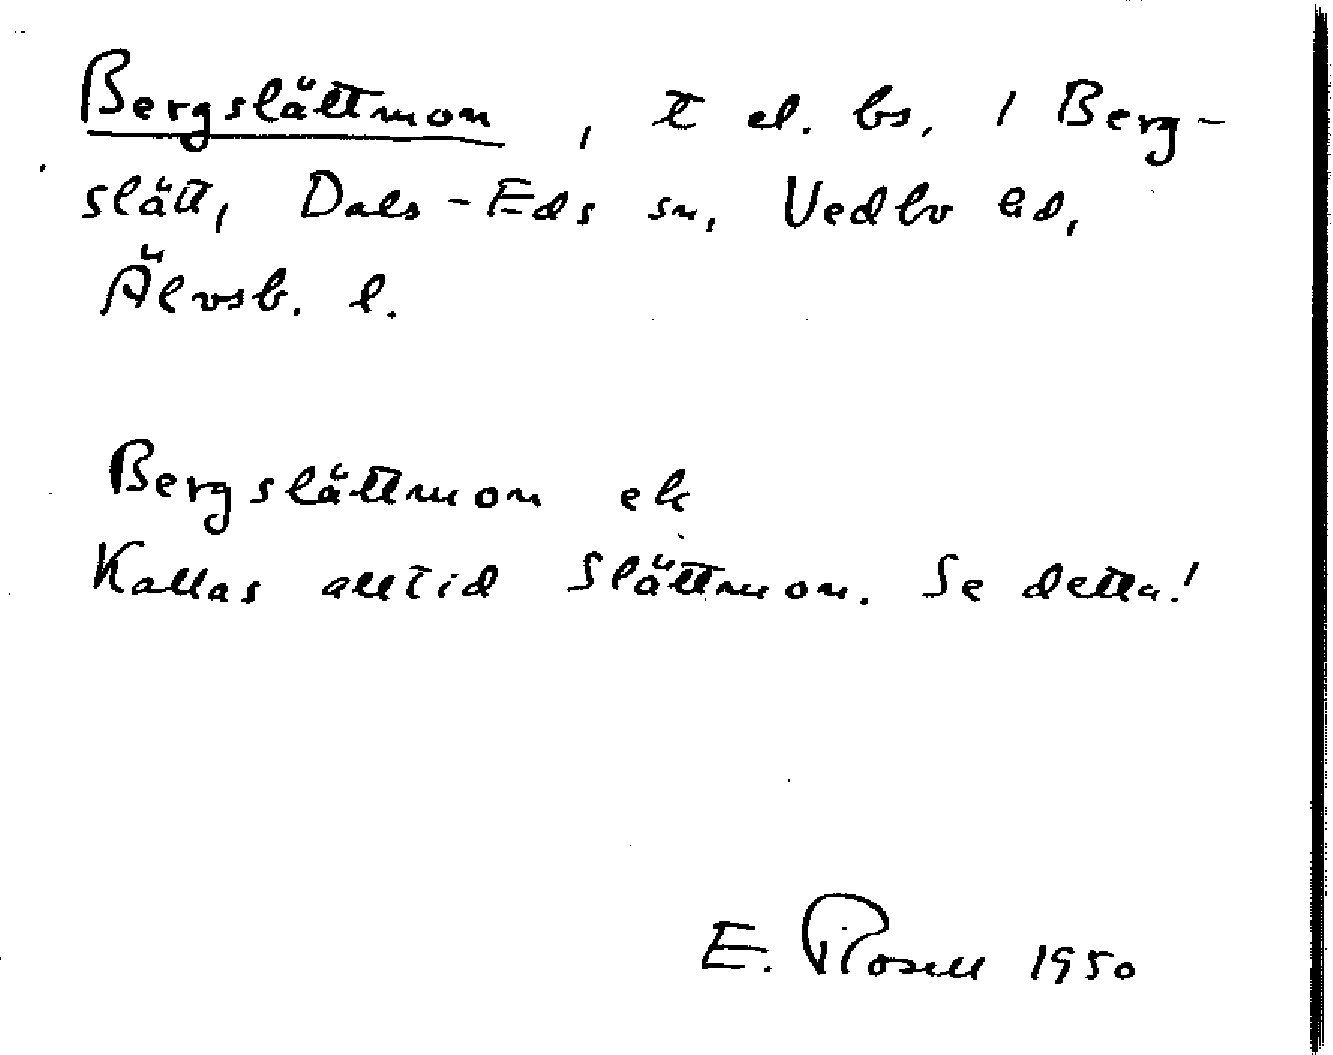 Bergslättmon, t el. bs. / Berg-
slätt, Dals-Eds sn, Vedbo hd,
Älvsb. l.
Bergslättmon ek
Kallas alltid Slättmon. Se detta!
E. Rosell 1950